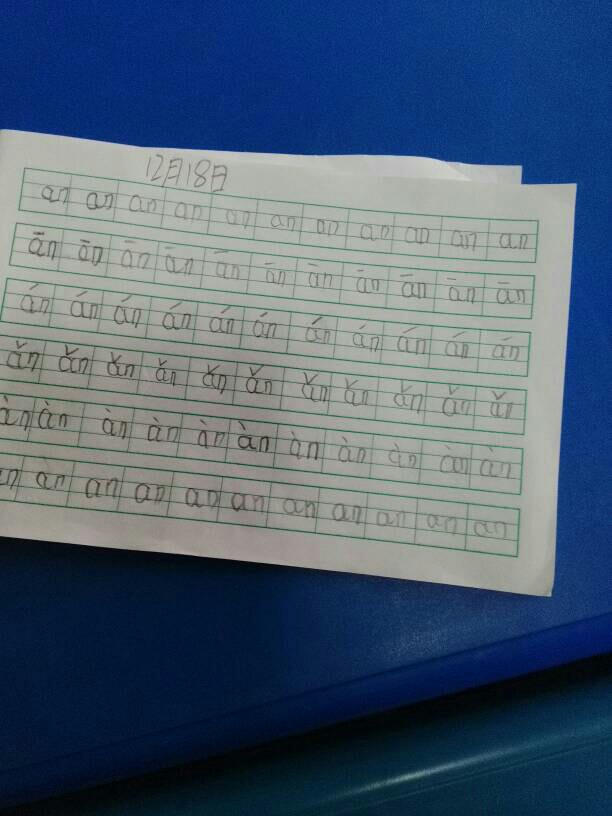 12月18日
an an an an an an an an an an an
ān ān ān ān ān ān ān ān ān ān ān
án án án án án án án án án án án
ǎn ǎn ǎn ǎn ǎn ǎn ǎn ǎn ǎn ǎn ǎn
àn àn àn àn àn àn àn àn àn àn àn
an àn an an an an an an an an an